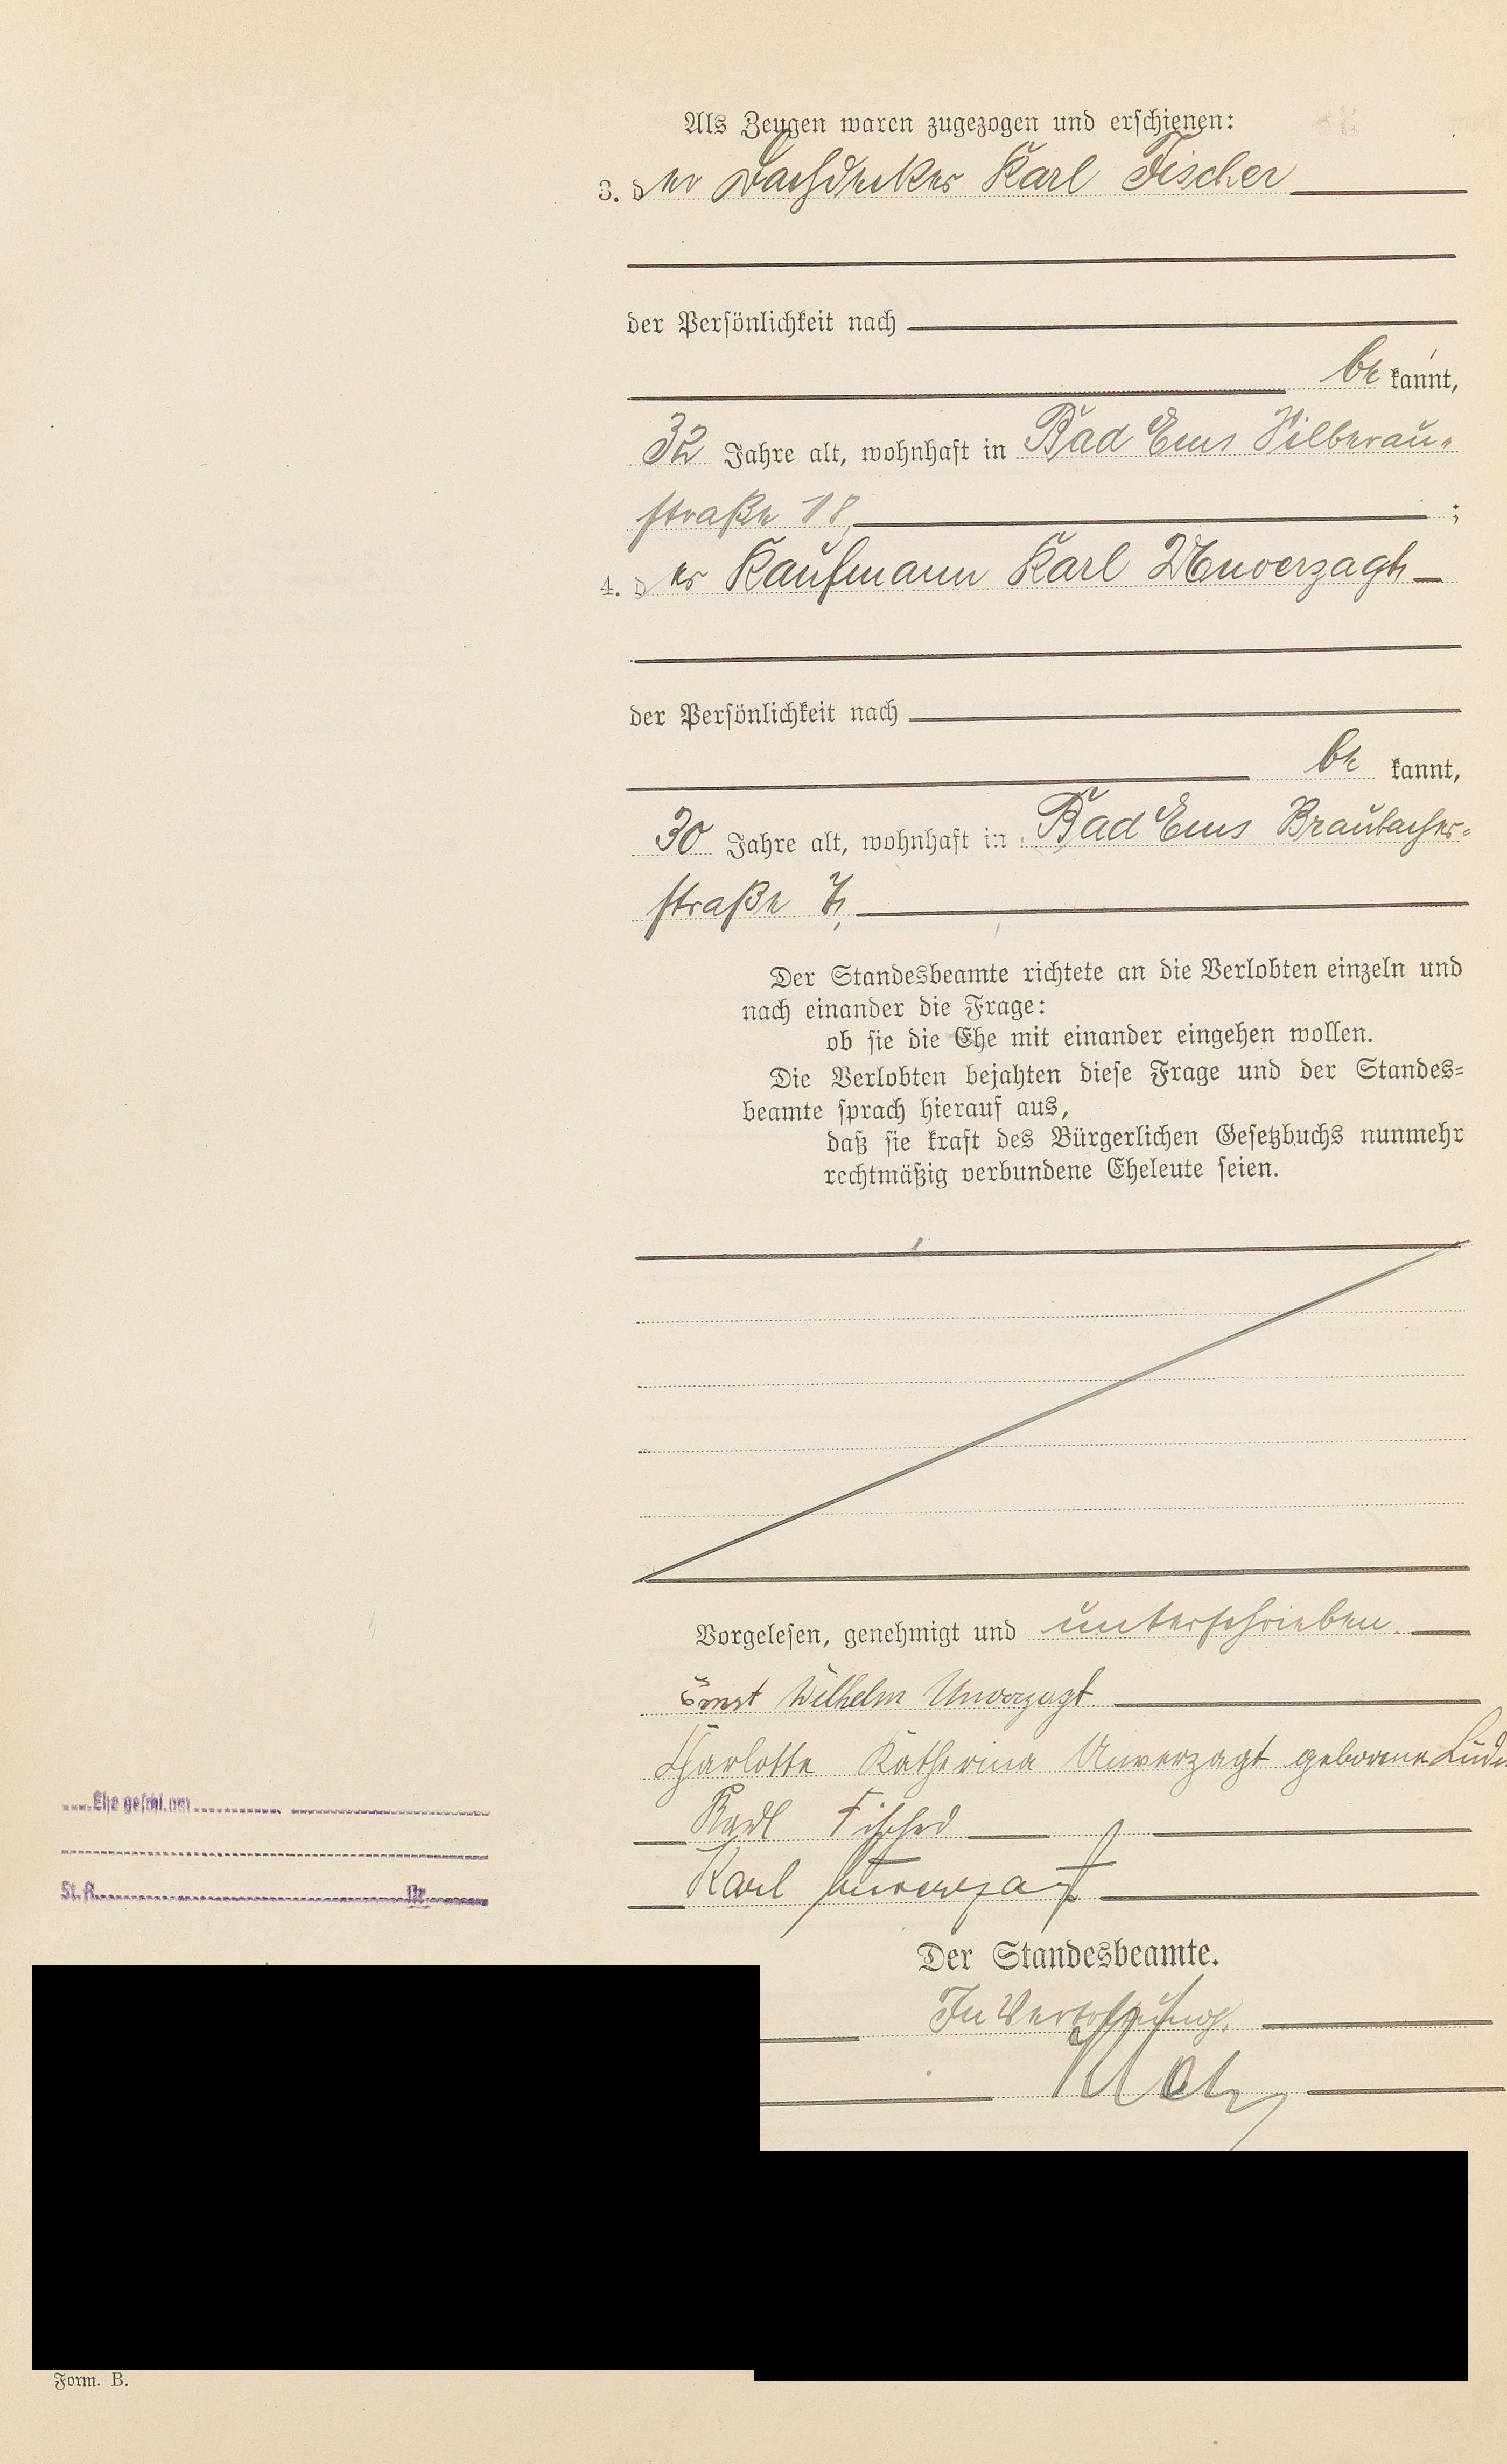 Als Zeugen waren zugezogen und erschienen:
3. der Dachdecker Karl Fischer
der Persönlichkeit nach
be kannt,
32 Jahre alt, wohnhaft in Bad Ems Silberau-
straße 18,;
4. der Kaufmann Karl Unverzagt
der Persönlichkeit nach
be kannt,
30 Jahre alt, wohnhaft in Bad Ems Braubacher-
straße 7,
Der Standesbeamte richtete an die Verlobten einzeln und
nach einander die Frage:
ob sie die Ehe mit einander eingehen wollen.
Die Verlobten bejahten diese Frage und der Standes-
beamte sprach hierauf aus,
daß sie kraft des Bürgerlichen Gesetzbuchs nunmehr
rechtmäßig verbundene Eheleute seien.
Vorgelesen, genehmigt und unterschrieben.
Ernst Wilhelm Unverzagt
Charlotte Katharina Unverzagt geborene
Karl Fischer
Karl Unverzagt
Ehe geschl. am
St. A. Nr.
Der Standesbeamte.
In Vertretung.
Form. B.